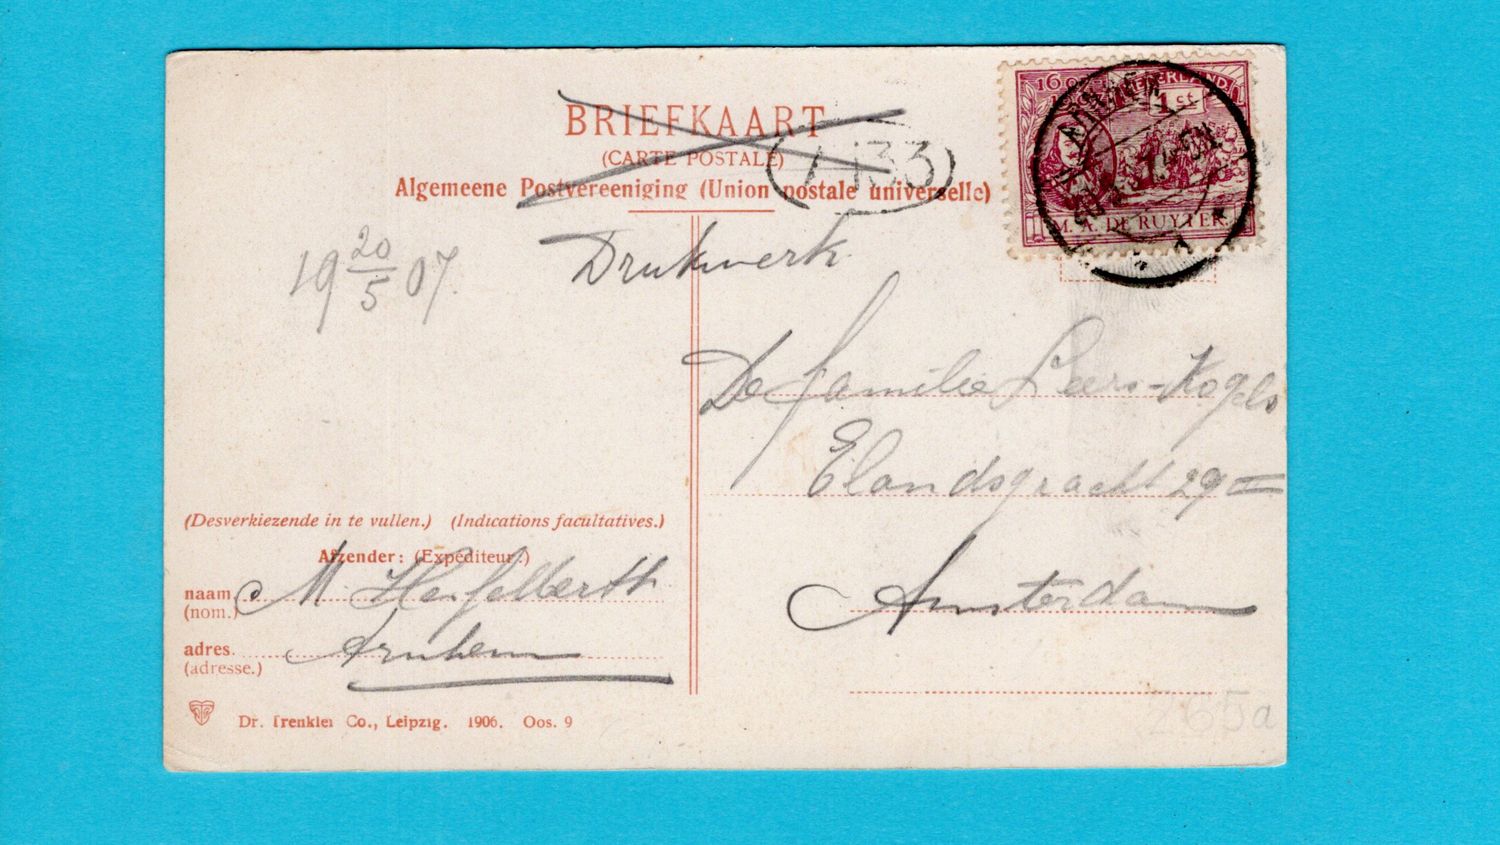 BRIEFKAART
(CARTE POSTALE)
Algemeene Postvereeniging (Union postale universelle)
NEDERLAND
1 st
M. A. DE RUYTER.
Drukwerk
19 20/5 07.
De familie Leers-Kogels
Elandsgracht 29 II
Amsterdam
(Desverkiezende in te vullen.) (Indications facultatives.)
Afzender: (Expéditeur:)
naam M.
(nom.)
adres. Arnhem
(adresse.)
Dr. Trenkler Co., Leipzig. 1906. Oos. 9
265a